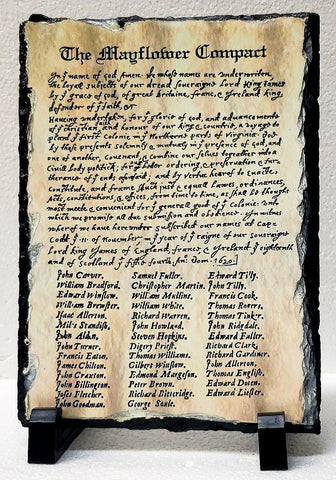 The Mayflower Compact
In y name of god Amen. we whose names are underwriten,
the loyal subjects of our dread soveraigne Lord King James
by y grace of god, of great Britaine, franc, & Ireland king,
defender of y faith, &c
Haveing undertaken, for y glorie of god, and advancements
of y christian faith and honour of our king & countrie, a voyage to
plant y first colonie in y Northerne parts of Virginia. Doe
by these presents solemnly & mutualy in y presence of god, and
one of another, covenant, & combine our selves togeather into a
Civill body politick; for our better ordering, & preservation & fur-
therance of y ends aforesaid; and by vertue hearof to enacte,
constitute, and frame such just & equall Lawes, ordinances,
Acts, constitutions, & offices, from time to time, as shall be thought
most meete & convenient for y generall good of y colonie: unto
which we promise all due submission and obedience. In witnes
wherof we have hereunder subscribed our names at cape
Codd y .11. of November, in y year of y raigne of our soveraigne
Lord King James of England, franc, & Ireland y eighteenth
and of Scotland y fiftie fourth. Ano Dom. 1620.
John Carver. Samuel Fuller. Edward Tilly.
William Bradford. Christopher Martin. John Tilly.
Edward Winslow. William Mullins. Francis Cook.
William Brewster. William White. Thomas Rogers.
Isaac Allerton. Richard Warren. Thomas Tinker.
Miles Standish. John Howland. John Ridgdale.
John Alden. Steven Hopkins. Edward Fuller.
John Turner. Digery Priest. Richard Clark.
Francis Eaton. Thomas Williams. Richard Gardiner.
James Chilton. Gilbert Winslow. John Allerton.
John Craxton. Edmond Margeson. Thomas English.
John Billington. Peter Brown. Edward Doten.
Joses Fletcher. Richard Bitteridge. Edward Liester.
John Goodman. George Soule.